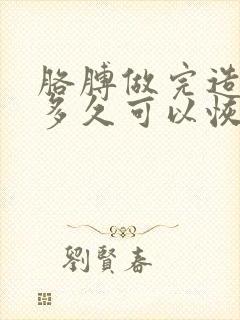 胳膊做完造
多久可以恢
劉賢春